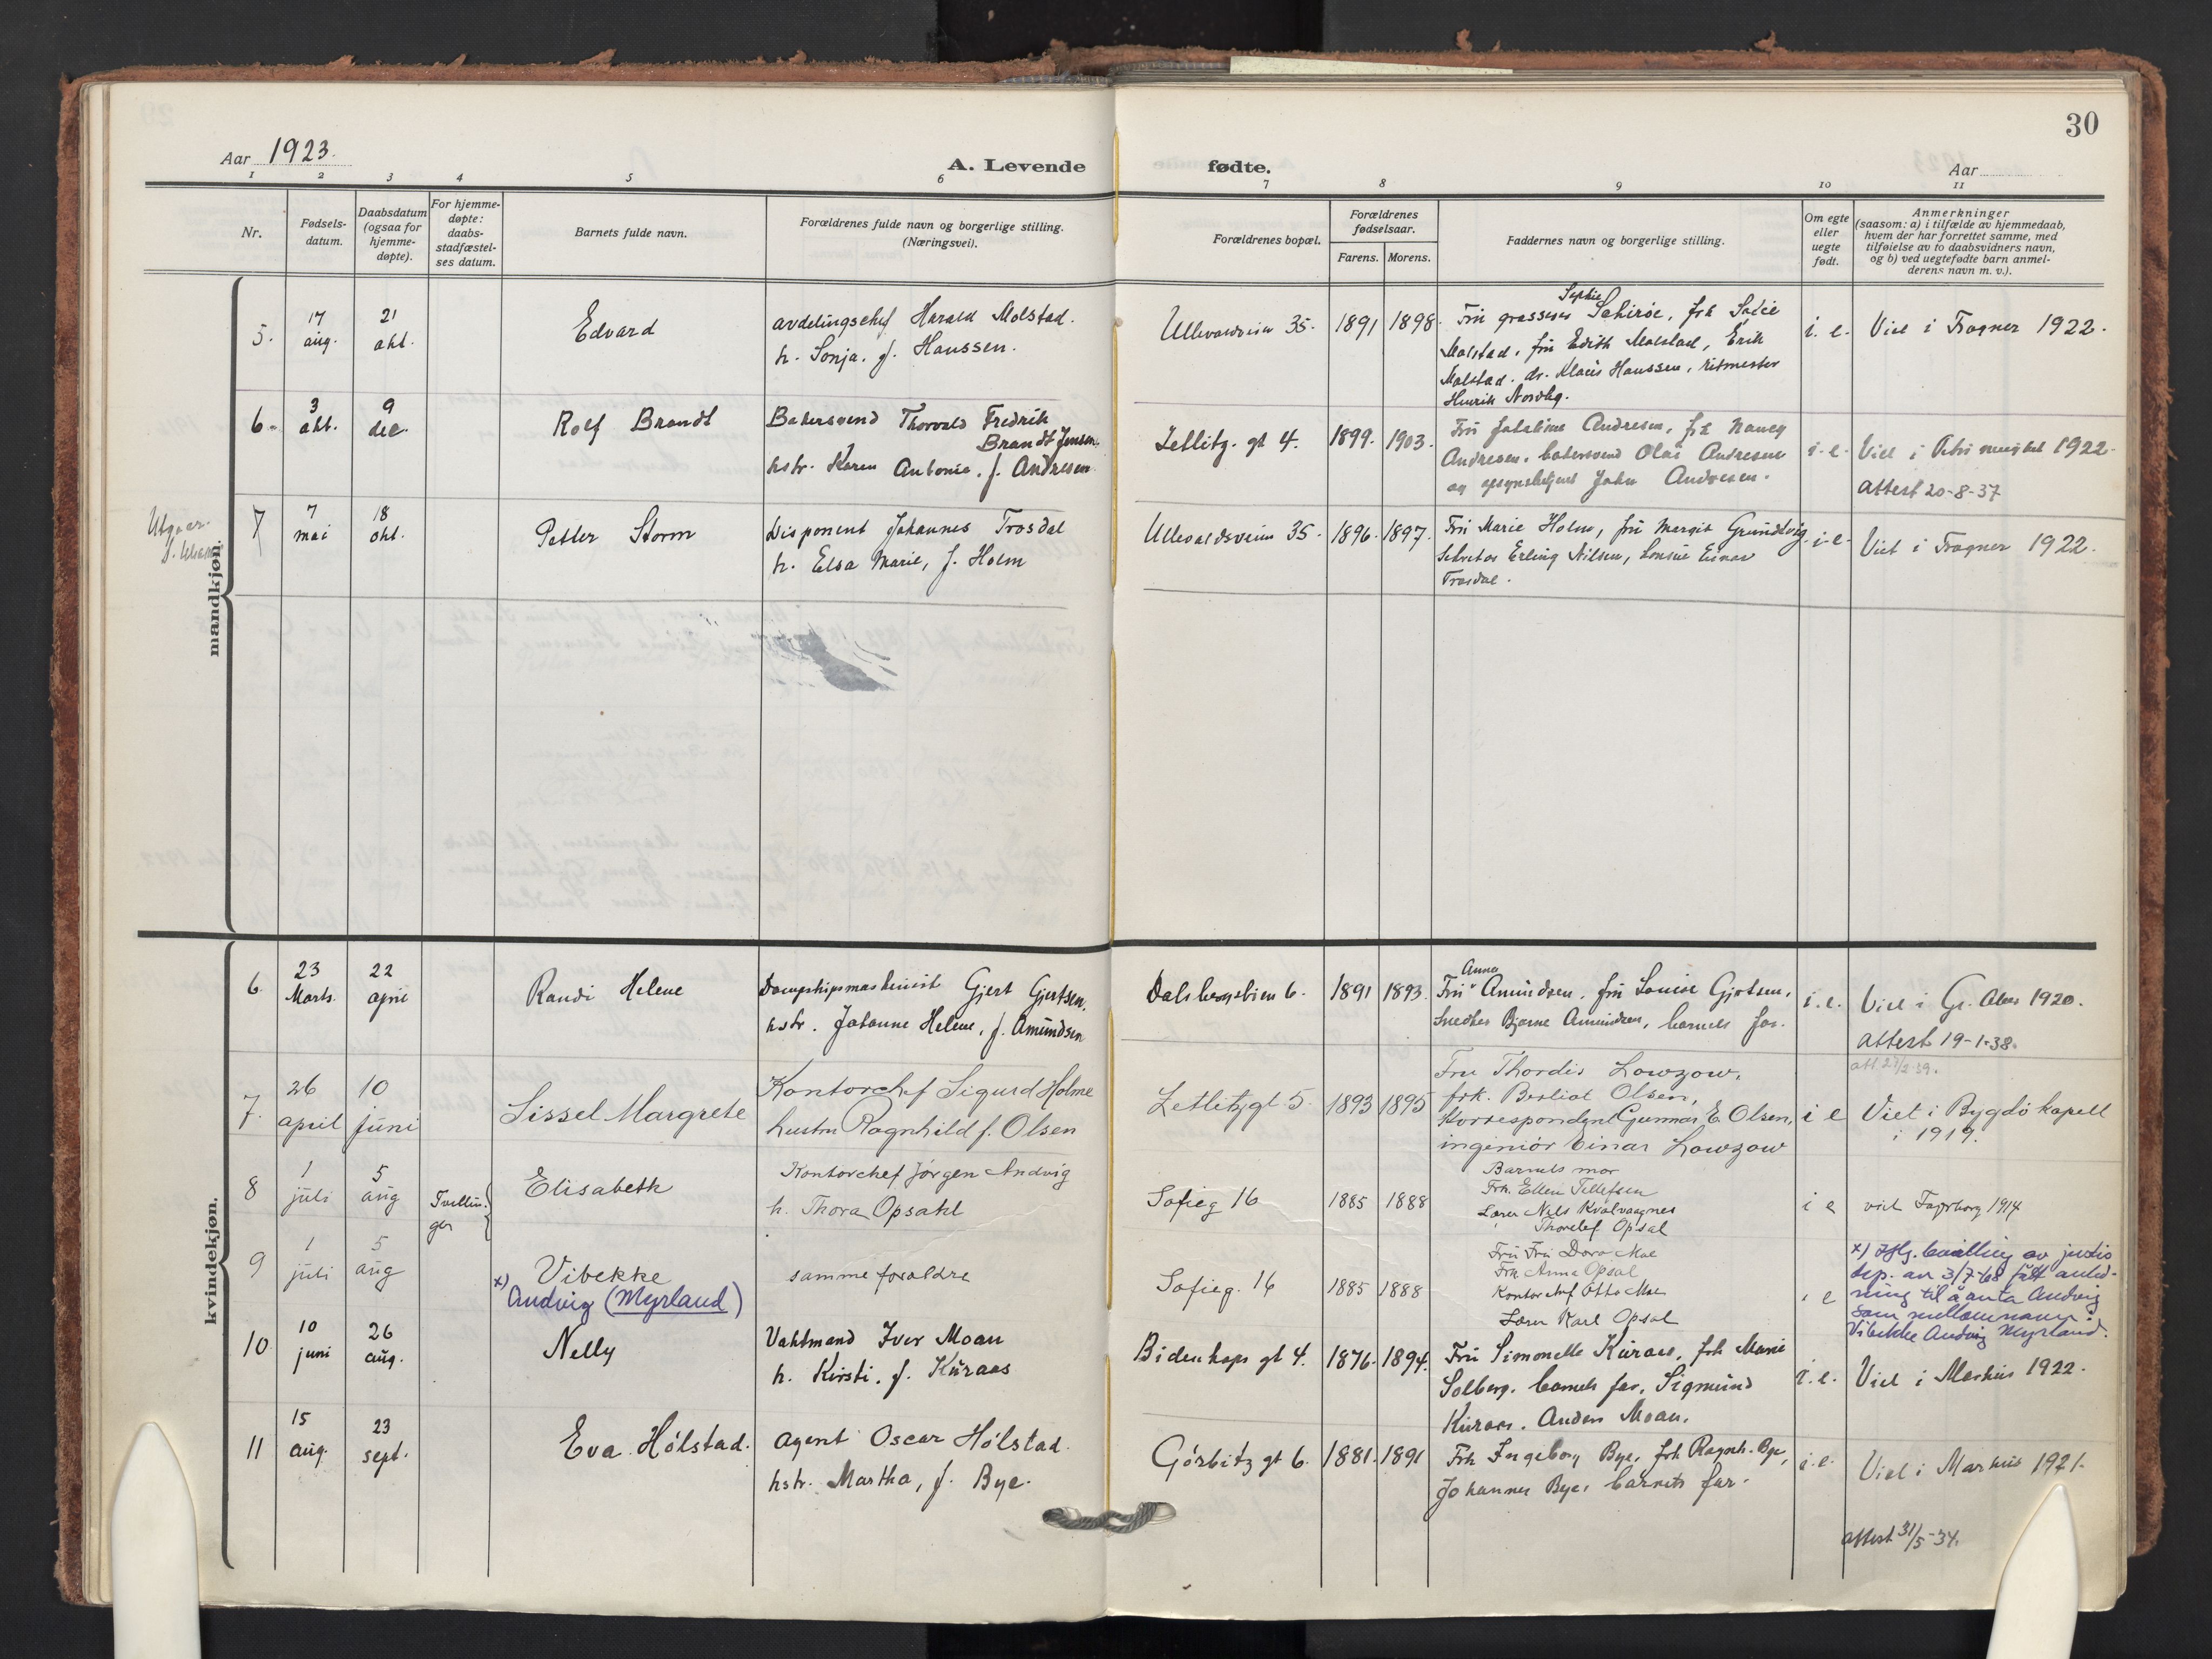 30
Aar 1923.
A. Levende fødte.
Aar
1 2 3 4 5 6 7 8 9 10 11
Nr.
Fødsels-
datum.
Daabsdatum
(ogsaa for
hjemme-
døpte).
For hjemme-
døpte:
daabs-
stadfæstel-
ses datum.
Barnets fulde navn.
Forældrenes fulde navn og borgerlige stilling.
(Næringsvei).
Forældrenes bopæl.
Forældrenes
fødselsaar.
Farens. Morens.
Faddernes navn og borgerlige stilling.
Om egte
eller
uegte
født.
Anmerkninger
(saasom: a) i tilfælde av hjemmedaab,
hvem der har forrettet samme, med
tilføielse av to daabsvidners navn,
og b) ved uegtefødte barn anmel-
derens navn m. v.).
mandkjøn.
5.
17
aug.
21
okt.
Edvard
avdelingschef Harald Molstad.
h. Sonja. f. Hanssen.
Ullevoldsveien 35.
1891 1898.
Sophie
Fru, frk
Molstad, fru Edith Molstad, Erik
Molstad. dr. Klaus Hanssen, ritmester
Henrik
i. e.
Viet i Frogner 1922.
6.
3
okt.
9
dec.
Rolf Brandt
Bakersvend Thorvald Fredrik
Brandt Jensen.
hstr. Karen Antonie. f. Andresen.
Zetlitz. gt 4.
1899. 1903.
Fru Andresen, frk Nancy
Andresen. bakersvend Olaf Andresen
og John Andresen.
i. e.
Viet i 1922.
attest 20-8-37
Utgaar.
7
7
mai
18
okt.
Petter Storm
Disponent Johannes Trosdal
h. Elsa Marie, f. Holm
Ullevoldsveien 35.
1896. 1897.
Fru Marie Holm, fru Margit Grundtvig.
Sekretær Erling Nilsen, Einar
Trosdal.
i. e.
Viet i Frogner 1922.
kvindekjøn.
6
23
Marts.
22
april
Randi Helene
Dampskipsmaskinist Gjert Gjertsen.
hstr. Johanne Helene, f. Amundsen
Dalsbergstien 6.
1891 1893.
Anna
Fru Amundsen. fru Louise Gjertsen,
Snedker Bjarne Amundsen, barnets far.
i. e.
Viet i Gr. Aker 1920.
attest 19-1-38.
att 27/2-39.
7.
26
april
10
juni
Sissel Margrete
Kontorchef Sigurd Holme
hustru Ragnhild f. Olsen
Zetlitzgt. 5.
1893 1895
Fru Thordis Lowzow,
frk. Berliot Olsen,
Korrespondent Gunnar E. Olsen,
ingeniør Einar Lowzow
i e
Viet i Bygdø kapell
i 1919.
8
1
juli
5
aug
Tvillin-
ger
Elisabeth
Kontorchef Jørgen Andvig
h. Thora Opsahl
Sofieg 16
1885 1888
Barnets mor
Frk. Ellen Tellefsen
Lærer Nils Kvalvaagnes
Thorleif Opsal
i e
viet Fagerborg 1914
9
1
juli
5
aug
Vibekke
x) Andvig (Myrland)
samme forældre
Sofieg. 16
1885 1888
Fru Fru Dora Moe
Frk Anna Opsal
Kontorchef Otto Moe
Lærer Karl Opsal
i e
x) Iflg. bevilling av justis
dep. av 3/7-68 fått anled-
ning til å anta Andvig
som mellomnavn:
Vibekke Andvig Myrland.
10
10
juni
26
aug.
Nelly
Vaktmand Iver Moan
h. Kirsti. f. Kuraas
Bidenkaps gt 4.
1876. 1894.
Fru Simonelle Kuraas, frk Marie
Solberg. barnets far, Sigmund
Kuraas. Anders Moan.
i. e.
Viet i Markus 1922.
11
15
aug.
23
sept.
Eva Hølstad.
Agent Oscar Hølstad.
hstr. Martha, f. Bye.
Gørbitz gt 6.
1881. 1891
Frk Ingeborg Bye, frk Ragnh. Bye,
Johannes Bye, barnets far.
i. e.
Viet i Markus 1921.
attest 31/5-34.